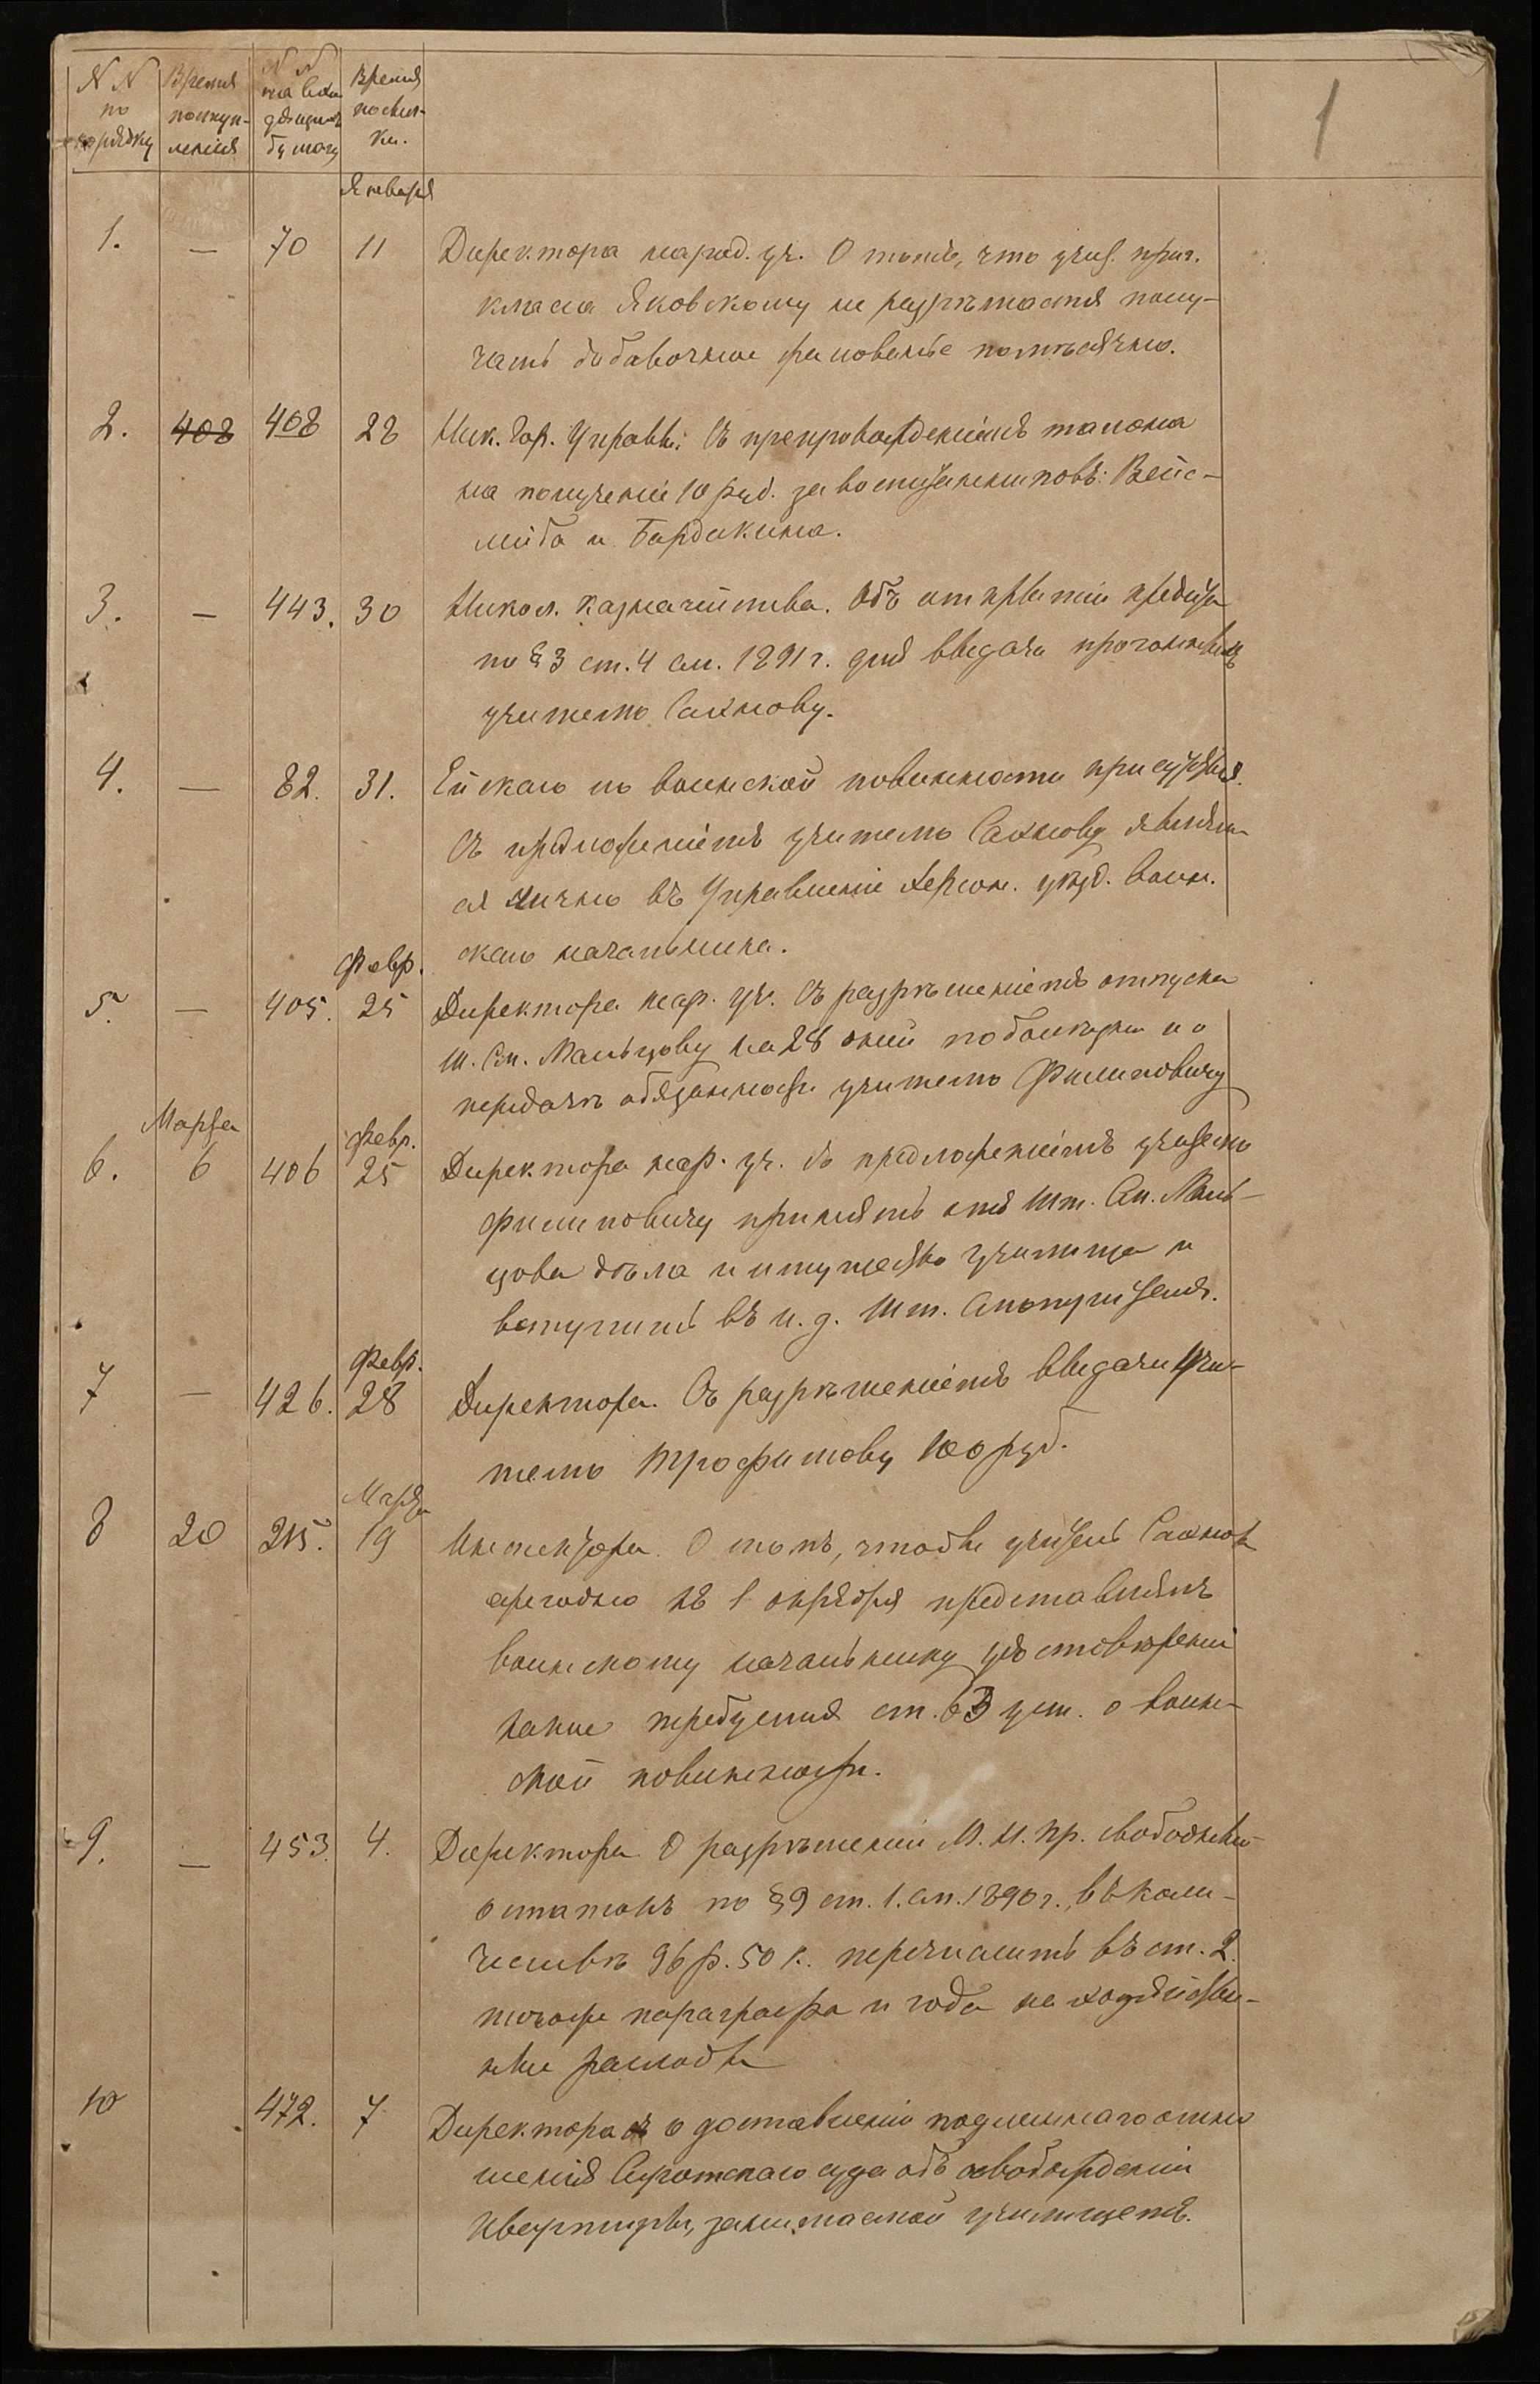 1
N N по порядку | Время поступленія | N N на входящихъ бумагъ | Время посылки.
Января
1. — 70 11 Директора народ. уч. О томъ, что учит. приг.
класса Яковскому не разрѣшается полу-
чать добавочное жалованье помѣсячно.
2. 408 408 28 Ник. Гор. Управы: Съ препровожденіемъ талона
на полученіе 10 руб. за воспитанниковъ: Вейс-
и Бардикина.
3. — 443. 30 Никол. Казначейства. Объ открытіи кредита
по § 3 ст. 4 см. 1891 г. для выдачи прогонныхъ
учителю Сахнову.
4. — 82. 31. Ейскаго по воинской повинности присутствія.
Съ предложеніемъ учителю Сахнову явить-
ся лично въ Управленіе Херсон. уѣзд. воин-
скаго начальника.
Февр.
5. — 405. 25 Директора нар. уч. Съ разрѣшеніемъ отпуска
Ш. См. Мальцову на 28 дней по болѣзни и о
передачѣ обязанности учителю Филиповичу
Марта Февр.
6. 6 406 25 Директора нар. уч. съ предложеніемъ учителю
Филиповичу принять отъ Шт. См. Маль-
цова дѣла и имущество училища и
вступить въ и. д. Шт. Смотрителя.
Февр.
7 — 426. 28 Директора. Съ разрѣшеніемъ выдачи учи-
телю Трофимову 100 руб.
Марта
8 20 215. 19 Инспектора. О томъ, чтобы учитель Сахновъ
ежегодно къ 1 октября представлялъ
воинскому начальнику удостовѣреніе
какое требуемыя ст. 63 уст. о воин-
ской повинности.
9. — 453. 4. Директора О разрѣшеніи М. Н. Пр. свободный
остатокъ по § 9 ст. 1. см. 1890 г., въ коли-
чествѣ 96 р. 50 к. перечислить въ ст. 2.
того же параграфа и года на хозяйствен-
ные расходы
10 472. 7 Директора о доставленіи подлиннаго отно
шенія Сиротскаго суда объ освобожденіи
квартиры, занимаемой училищемъ.